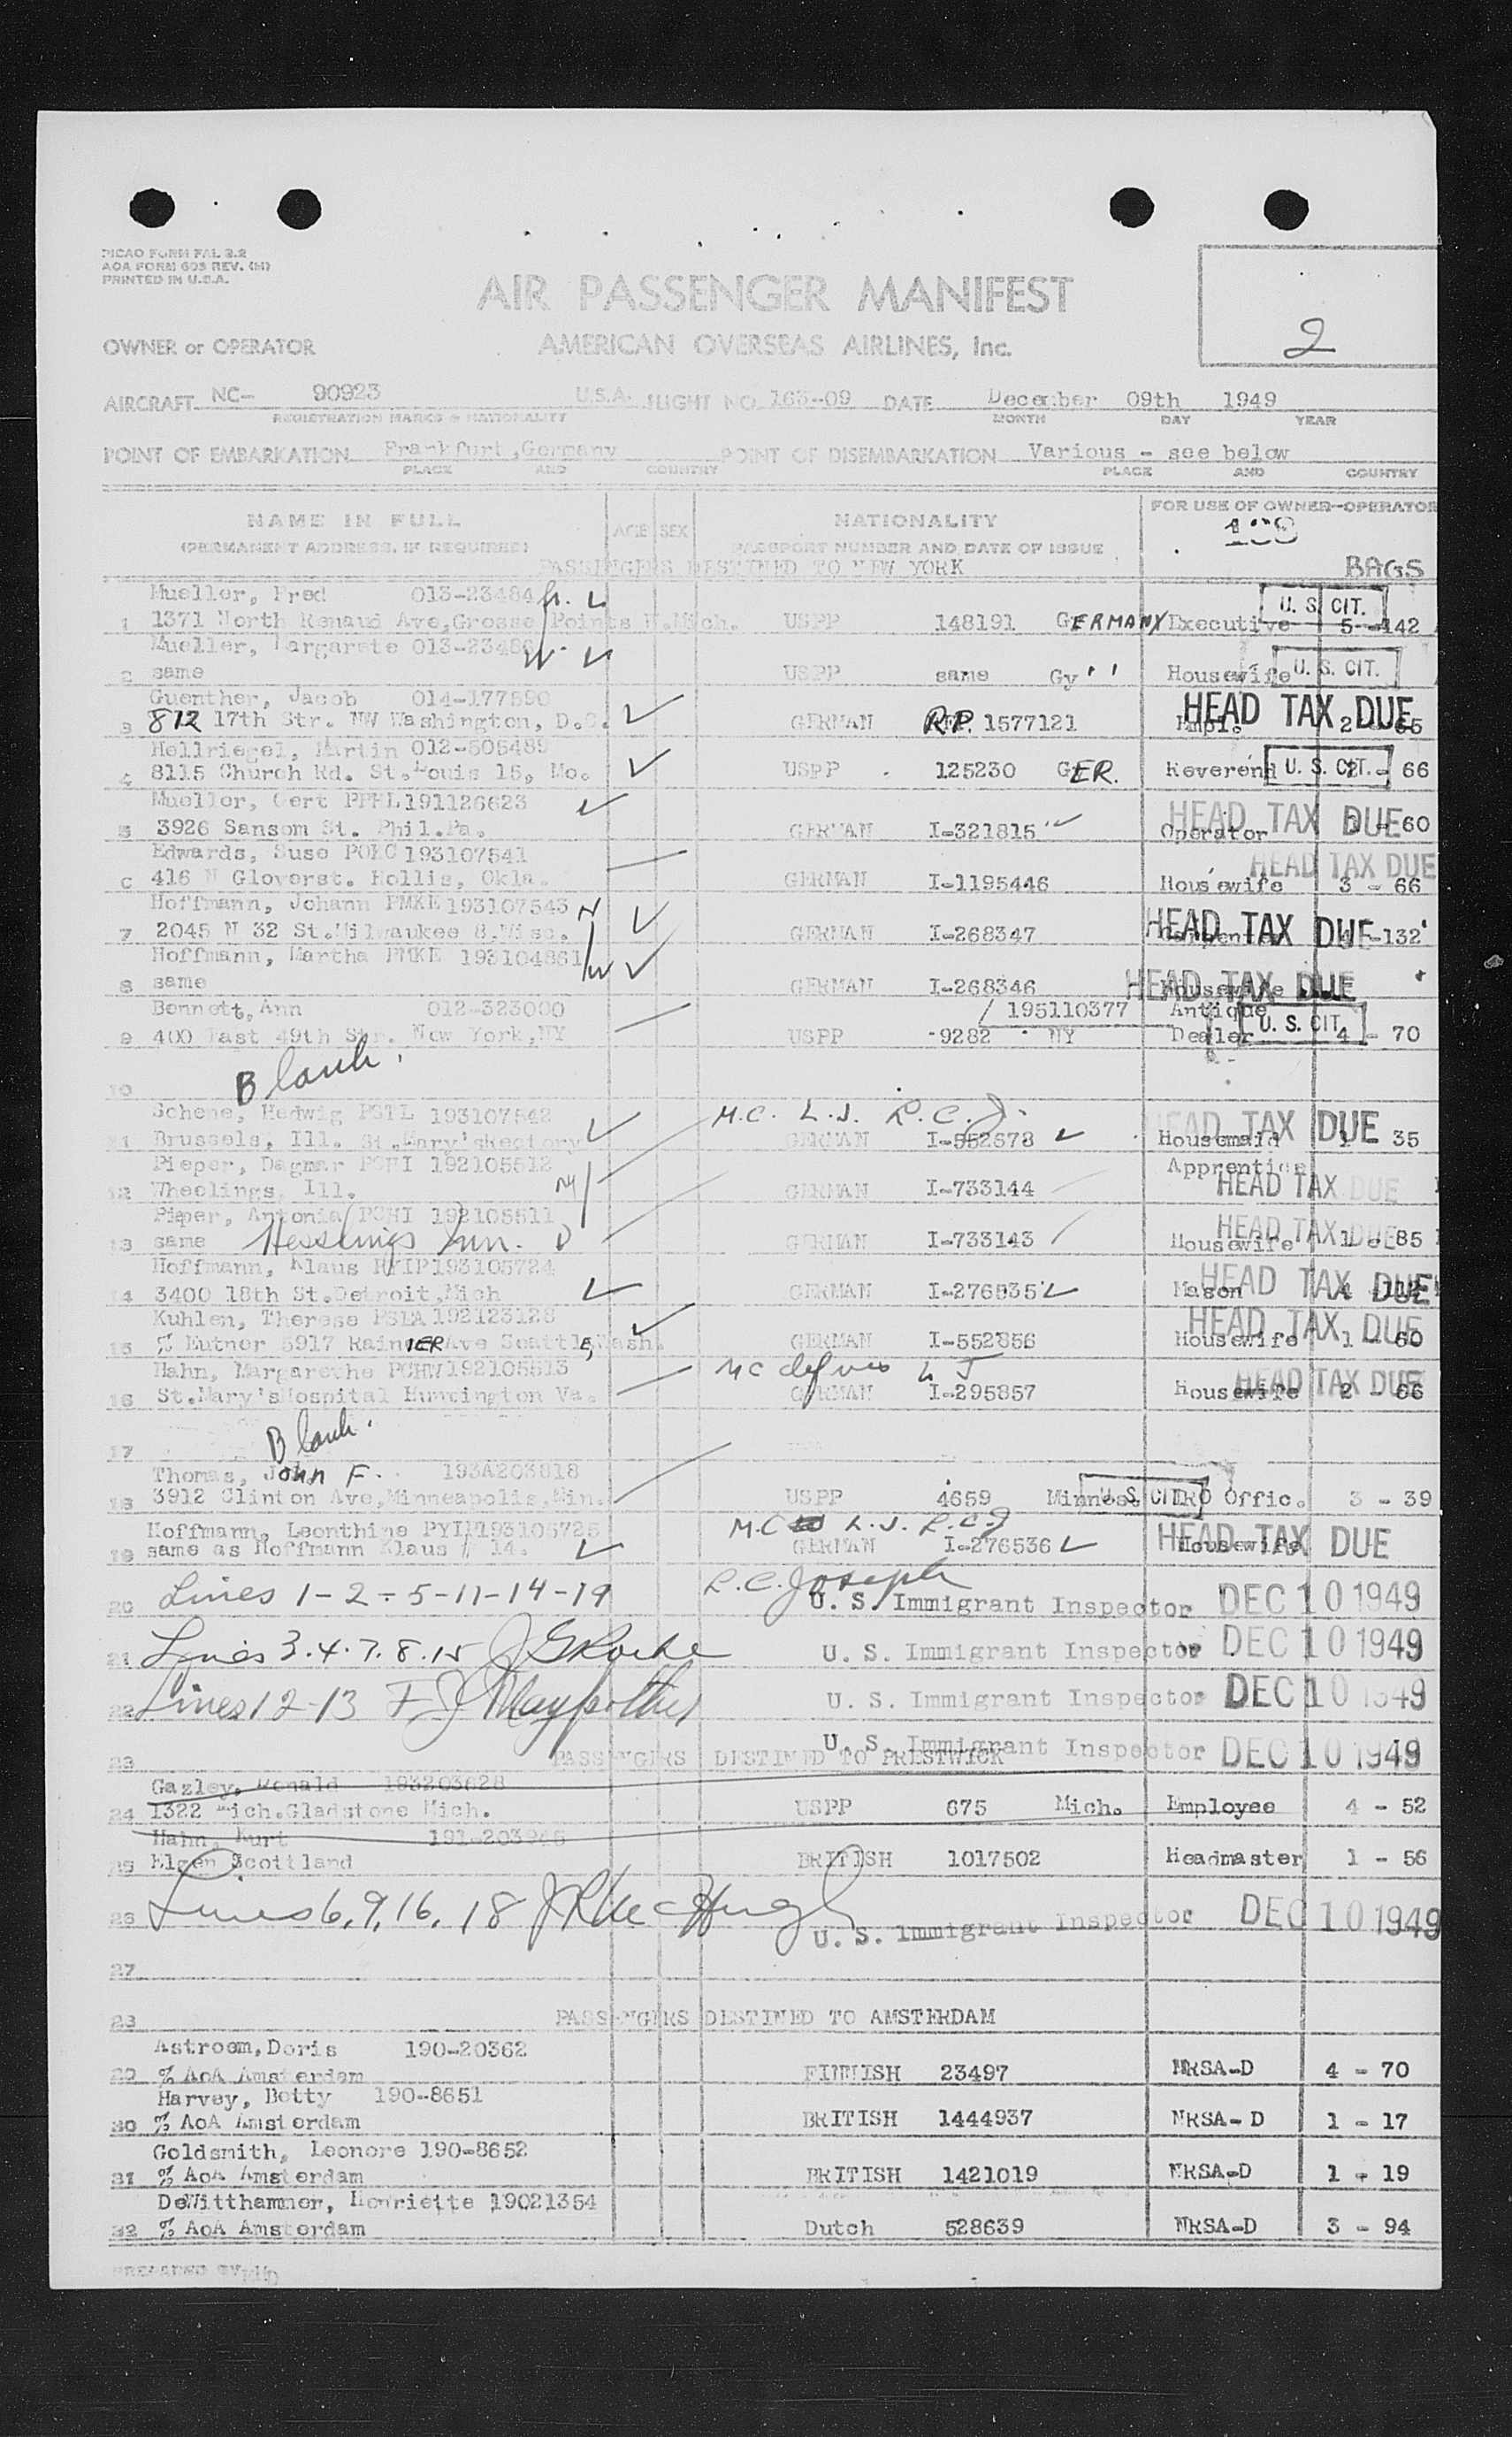 ICAO FORM FAL 2.2
AOA FORM 603 REV.
PRINTED IN U.S.A.
AIR PASSENGER MANIFEST
2
OWNER or OPERATOR AMERICAN OVERSEAS AIRLINES, Inc.
AIRCRAFT NC- 90923 U.S.A. FLIGHT NO. 163-09 DATE December 09th 1949
REGISTRATION MARKS & NATIONALITY MONTH DAY YEAR
POINT OF EMBARKATION Frankfurt, Germany POINT OF DISEMBARKATION Various - see below
PLACE AND COUNTRY PLACE AND COUNTRY
NAME IN FULL AGE SEX NATIONALITY FOR USE OF OWNER-OPERATOR
(PERMANENT ADDRESS, IF REQUIRED) PASSPORT NUMBER AND DATE OF ISSUE
BAGS
PASSENGERS DESTINED TO NEW YORK
Mueller, Fred 013-23484 U. S. CIT.
1 1371 North Renaud Ave, Grosse Points W. Mich. USPP 148191 GERMANY Executive 5 -142
Mueller, Margarete 013-23486 U. S. CIT.
2 same USPP same Gy '' Housewife
Guenther, Jacob 014-177590 HEAD TAX DUE
3 812 17th Str. NW Washington, D.C. GERMAN R.P. 1577121 Empl. 2
Hellriegel, Martin 012-505489
4 8115 Church Rd. St. Louis 15, Mo. USPP 125230 GER. Reverend U. S. CIT. - 66
Mueller, Gert PPHL191126623 HEAD TAX DUE
5 3926 Sansom St. Phil.Pa. GERMAN I-321815 Operator - 60
Edwards, Suse POKC193107541 HEAD TAX DUE
6 416 N Gloverst. Hollis, Okla. GERMAN I-1195446 Housewife 3 - 66
Hoffmann, Johann PMKE193107543 HEAD TAX DUE
7 2045 N 32 St. Milwaukee 8. Wisc. GERMAN I-268347 -132
Hoffmann, Martha PMKE 193104861 HEAD TAX DUE
8 same GERMAN I-268346 Housewife
Bennett, Ann 012-323000 / 195110377 Antique
9 400 East 49th Str. New York, NY USPP -9282 NY Dealer U. S. CIT. 4 - 70
10 Blank.
Schene, Hedwig PSTL 193107542 M.C. L.J. R.C.J. HEAD TAX DUE
11 Brussels, Ill. St. Mary's Rectory GERMAN I-552678 Housemaid 1 35
Pieper, Dagmar PCHI 192105512 Apprentice
12 Wheelings, Ill. GERMAN I-733144 HEAD TAX DUE
Pieper, Antonia PCHI 192105511 HEAD TAX DUE
13 same GERMAN I-733143 Housewife 1 - 85
Hoffmann, Klaus 193105724 HEAD TAX DUE
14 3400 18th St. Detroit, Mich GERMAN I-276535 Mason
Kuhlen, Therese PSLA 192123128 HEAD TAX DUE
15 % Eutner 5917 RainIER Ave Seattle, Wash. GERMAN I-552856 Housewife 1 - 60
Hahn, Margarethe PCHW192105513 HEAD TAX DUE
16 St. Mary's Hospital Huntington Va. GERMAN I-295857 Housewife 2 - 66
17 Blank.
Thomas, John F. 193A203818
18 3912 Clinton Ave, Minneapolis, Min. USPP 4659 Minnes. U. S. CIT. IRO Offic. 3 - 39
Hoffmann, Leonthine 193105725 M.C. L.J. R.C.J HEAD TAX DUE
19 same as Hoffmann Klaus # 14. GERMAN I-276536 Housewife
20 Lines 1-2-5-11-14-19 R.C. Joseph U. S. Immigrant Inspector DEC 10 1949
21 Lines 3.4.7.8.15 U. S. Immigrant Inspector DEC 10 1949
22 Lines 12-13 U. S. Immigrant Inspector DEC 10 1949
U. S. Immigrant Inspector DEC 10 1949
23 PASSENGERS DESTINED TO PRESTWICK
Gazley, Ronald 193203628
24 1322 Mich. Gladstone Mich. USPP 675 Mich. Employee 4 - 52
Hahn, Kurt
25 Elgen Scottland BRITISH 1017502 Headmaster 1 - 56
26 Lines 6, 9, 16, 18 U. S. Immigrant Inspector DEC 10 1949
27
28 PASSENGERS DESTINED TO AMSTERDAM
Astroem, Doris 190-20362
29 % AoA Amsterdam FINNISH 23497 NRSA-D 4 - 70
Harvey, Betty 190-8651
30 % AoA Amsterdam BRITISH 1444937 NRSA-D 1 - 17
Goldsmith, Leonore 190-8652
31 % AoA Amsterdam BRITISH 1421019 NRSA-D 1 - 19
DeWitthammer, Henriette 19021354
32 % AoA Amsterdam Dutch 528639 NRSA-D 3 - 94
PREPARED BY